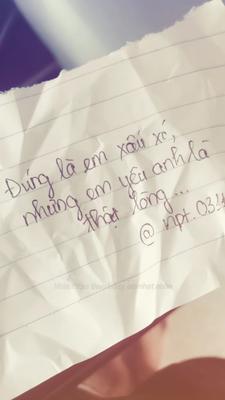 Đúng là em xấu xí,
nhưng em yêu anh là
thật lòng...
@ npt.03.